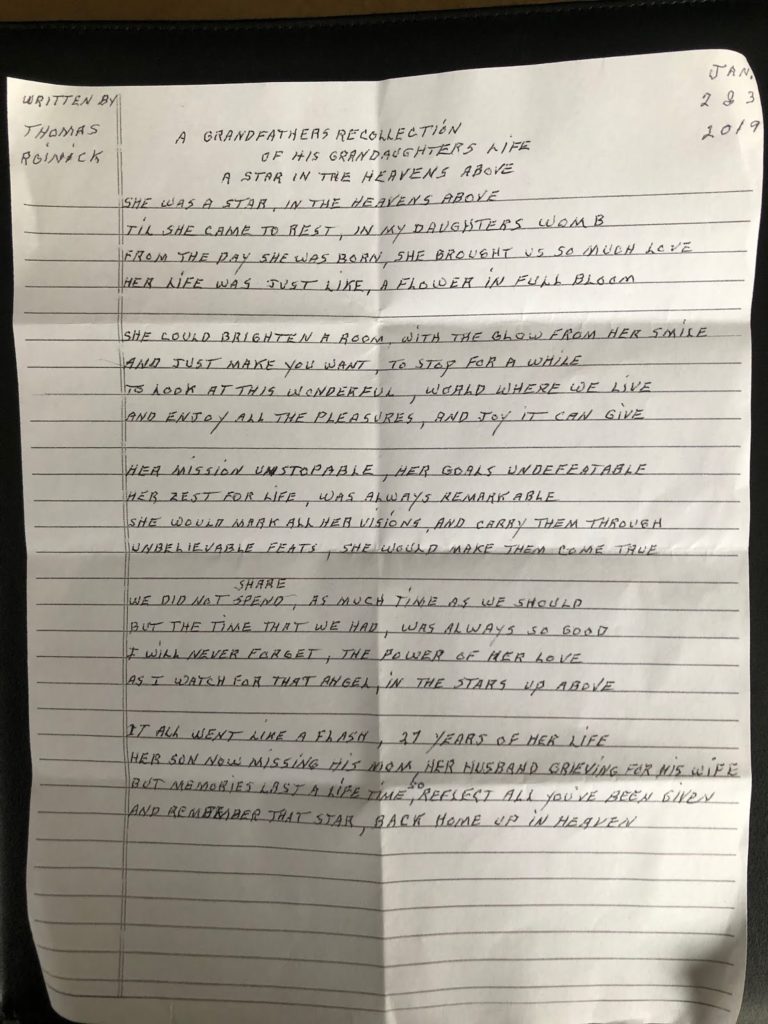 WRITTEN BY
THOMAS
JAN.
2 & 3
2019
A GRANDFATHERS RECOLLECTION
OF HIS GRANDAUGHTERS LIFE
A STAR IN THE HEAVENS ABOVE
SHE WAS A STAR, IN THE HEAVENS ABOVE
TIL SHE CAME TO REST, IN MY DAUGHTERS WOMB
FROM THE DAY SHE WAS BORN, SHE BROUGHT US SO MUCH LOVE
HER LIFE WAS JUST LIKE, A FLOWER IN FULL BLOOM
SHE COULD BRIGHTEN A ROOM, WITH THE GLOW FROM HER SMILE
AND JUST MAKE YOU WANT, TO STOP FOR A WHILE
TO LOOK AT THIS WONDERFUL, WORLD WHERE WE LIVE
AND ENJOY ALL THE PLEASURES, AND JOY IT CAN GIVE
HER MISSION UNSTOPABLE, HER GOALS UNDEFEATABLE
HER ZEST FOR LIFE, WAS ALWAYS REMARKABLE
SHE WOULD MARK ALL HER VISIONS, AND CARRY THEM THROUGH
UNBELIEVABLE FEATS, SHE WOULD MAKE THEM COME TRUE
SHARE
WE DID NOT SPEND, AS MUCH TIME AS WE SHOULD
BUT THE TIME THAT WE HAD, WAS ALWAYS SO GOOD
I WILL NEVER FORGET, THE POWER OF HER LOVE
AS I WATCH FOR THAT ANGEL, IN THE STARS UP ABOVE
IT ALL WENT LIKE A FLASH, 27 YEARS OF HER LIFE
HER SON NOW MISSING HIS MOM, HER HUSBAND GRIEVING FOR HIS WIFE
BUT MEMORIES LAST A LIFE TIME, SO REFLECT ALL YOU'VE BEEN GIVEN
AND REMEMBER THAT STAR, BACK HOME UP IN HEAVEN